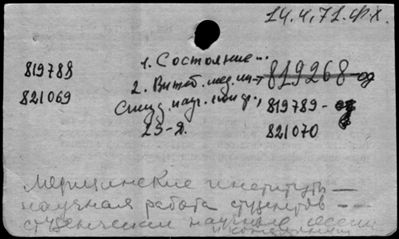 14.4.71. ФХ.
819788 1. Состояние...
2. Витеб. мед. ин-т 819268-од
821069 Студ. науч. конф., 819789-од
23-я. 821070
Медицинские институты —
научная работа студентов — —
студенческие научные
и конференции